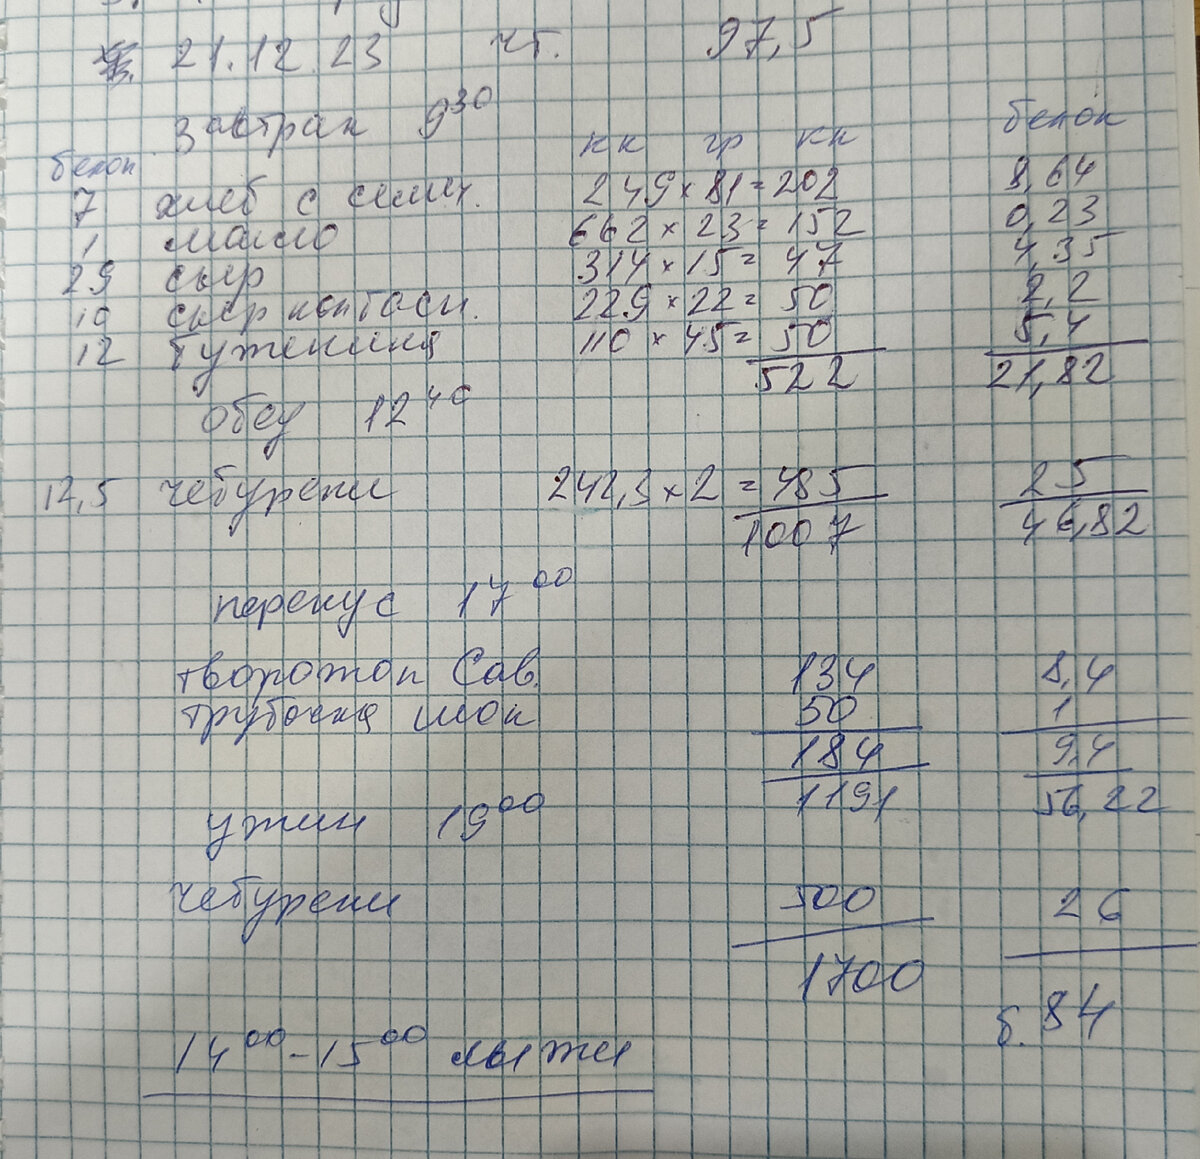 21.12.23 чт. 97,5
завтрак 9³⁰
белок кк гр кк белок
7 хлеб с семеч. 249 × 81 = 202 8,64
1 масло 662 × 23 = 152 0,23
29 сыр 314 × 15 = 47 4,35
10 сыр колбасн. 229 × 22 = 50 2,2
12 буженина 110 × 45 = 50 5,4
522 21,82
обед 12⁴⁰
12,5 чебуреки 242,3 × 2 = 485 25
1007 46,82
перекус 17⁰⁰
творожок Сав. 134 8,4
трубочка шок 50 1
184 9,4
1191 56,22
ужин 19⁰⁰
чебуреки 500 26
1700
б. 84
14⁰⁰-15⁰⁰ лыжи